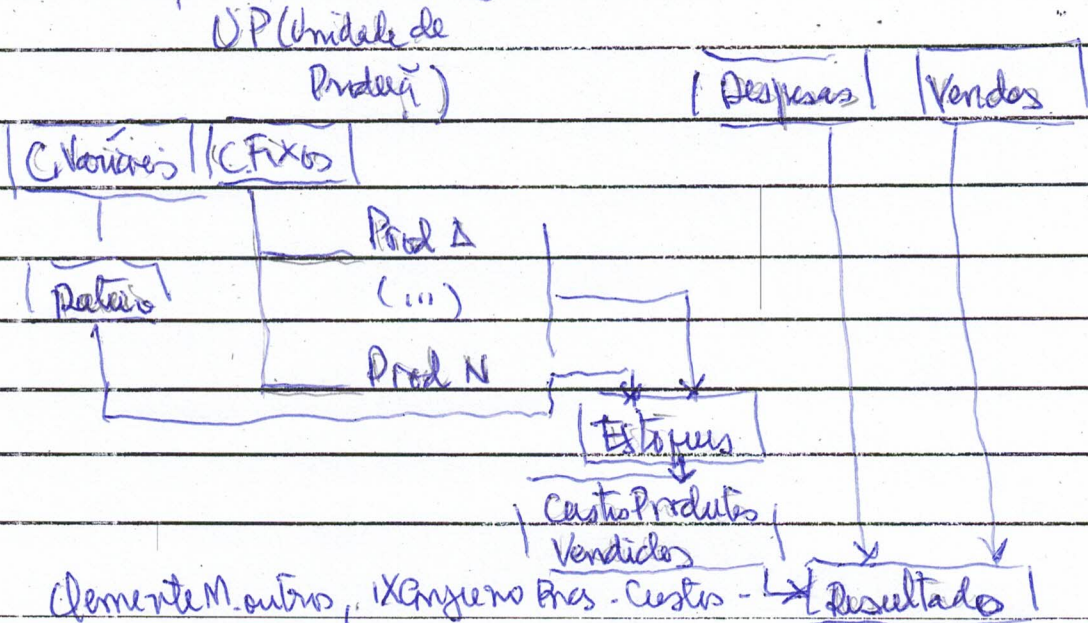 UP (Unidade de
Produçã)
Despesas
Vendas
C. Variáveis
C. Fixos
Prod A
Rateio
(...)
Prod N
Estoques
Custo Produtos
Vendidos
Clemente M. outros, Custos -
Resultados